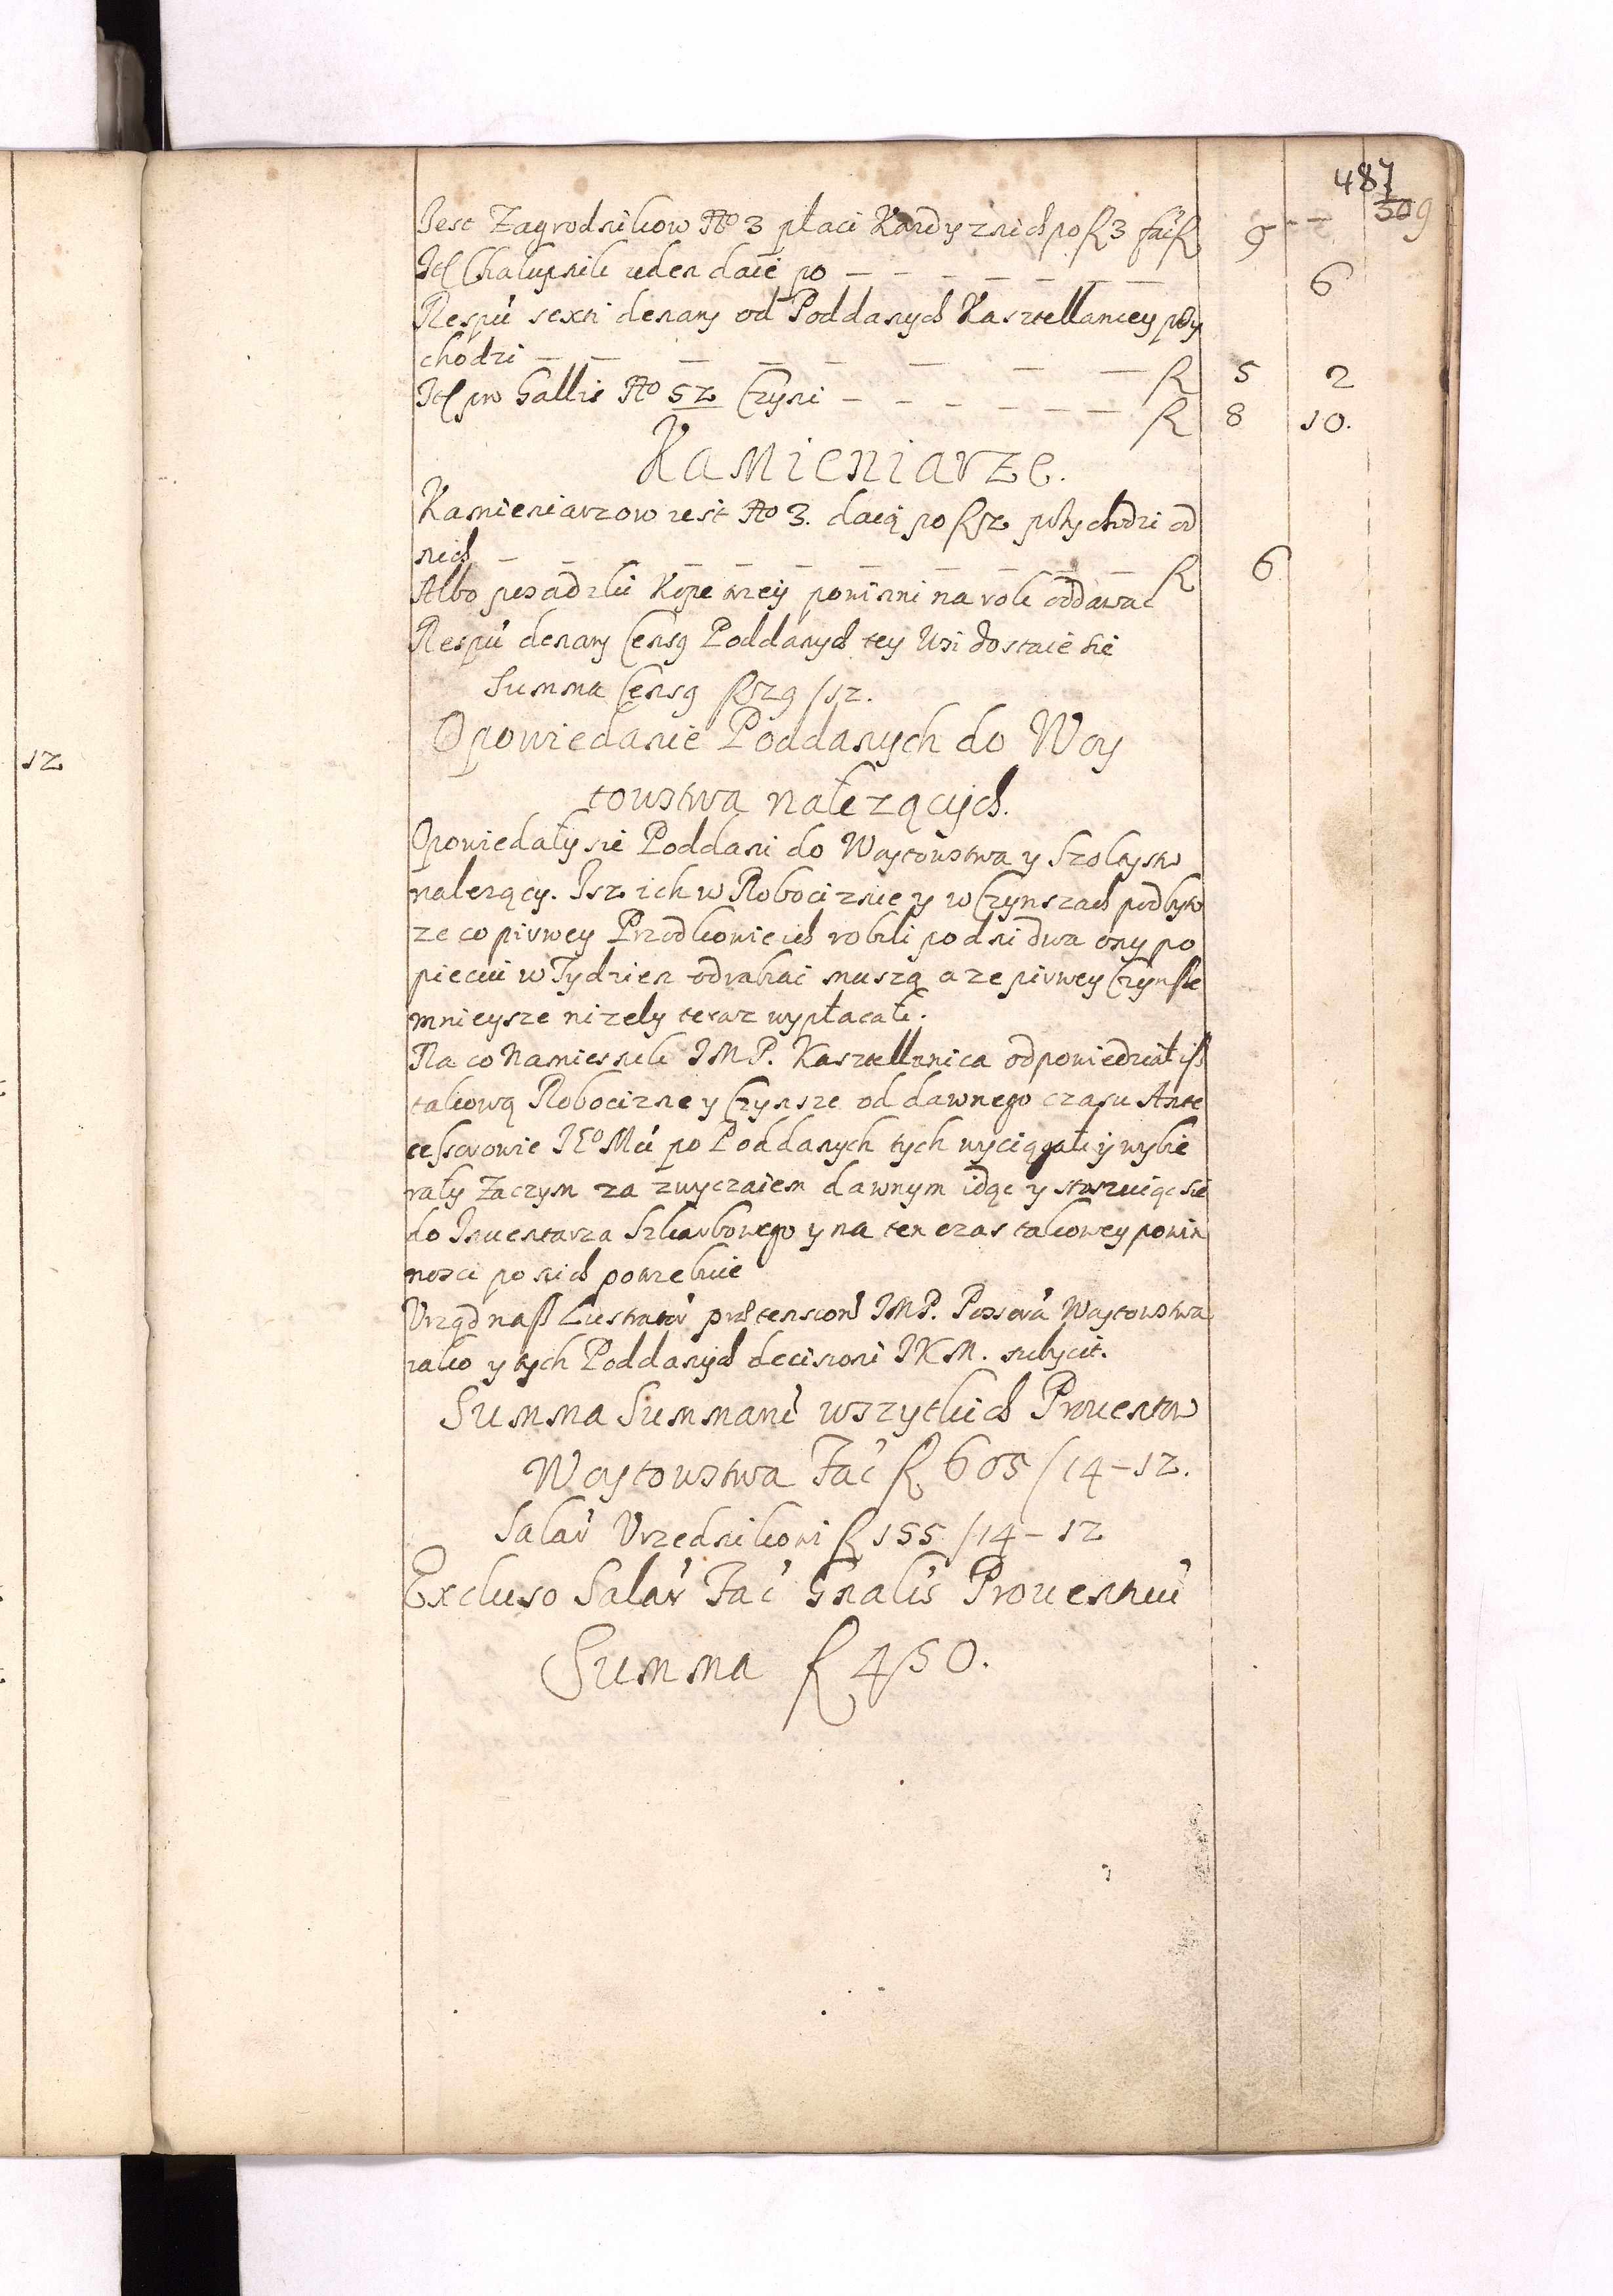 487
309
Jest Zagrodnikow No 3 płaci Kazdy z nich po fl 3 facit fl 9 - -
Itē Chałupnik ieden daie po - - - - - - 6
Respū sexti denary od Poddanych Kasztellaniey przy
chodzi - - - - - - - - fl 5 2
Itē pro Gallis No 52 Czyni - - - - - - fl 8 10.
Kamieniarze.
Kamieniarzow iest No 3. daią po fl 2 przychodzi od
nich - - - - - - - - fl 6
Albo posadzki Kope wzey powinni na rok oddawac
Respū denary Censg Poddanych tey Wsi dostaie sie
Summa Censg fl 29 / 12.
Opowiedanie Poddanych do Woy
towstwa nałezących.
Opowiedały sie Poddani do Woytowstwa y Szołtystw
nalezący. Isz ich w Robociznie y w Czynszach podbyto
ze co pirwey Przodkowie ich robili po dni dwa ony po
pieciu w Tydzien odrabiac muszą a ze pirwey Czynsze
mnieysze nizely teraz wypłacałi.
Na co Namiesnik IMP. Kasztellanica odpowiedział isz
takową Robocizne y Czynsze od dawnego czasu Ante
cessorowie IEo Mći po Poddanych tych wyciągałi y wybie
rały Zaczym za zwyczaiem dawnym idąc y stosuiąc sie
do Inwentarza Szkarbowego y na ten czas takowey powin
nosci po nich potrzebuie
Urząd nasz Lustratōr prætensionē IMP. Possesra Woytowstwa
iako y tych Poddanych decisioni IKM. subycit.
Summa Summarū wszytkich Prouentow
Woytowstwa Facit fl 605 / 14 - 12.
Salarj Vrzednikowi fl 155 / 14 - 12
Excluso Salario Facit Gnalis Prouentuū
Summa fl 450.
12